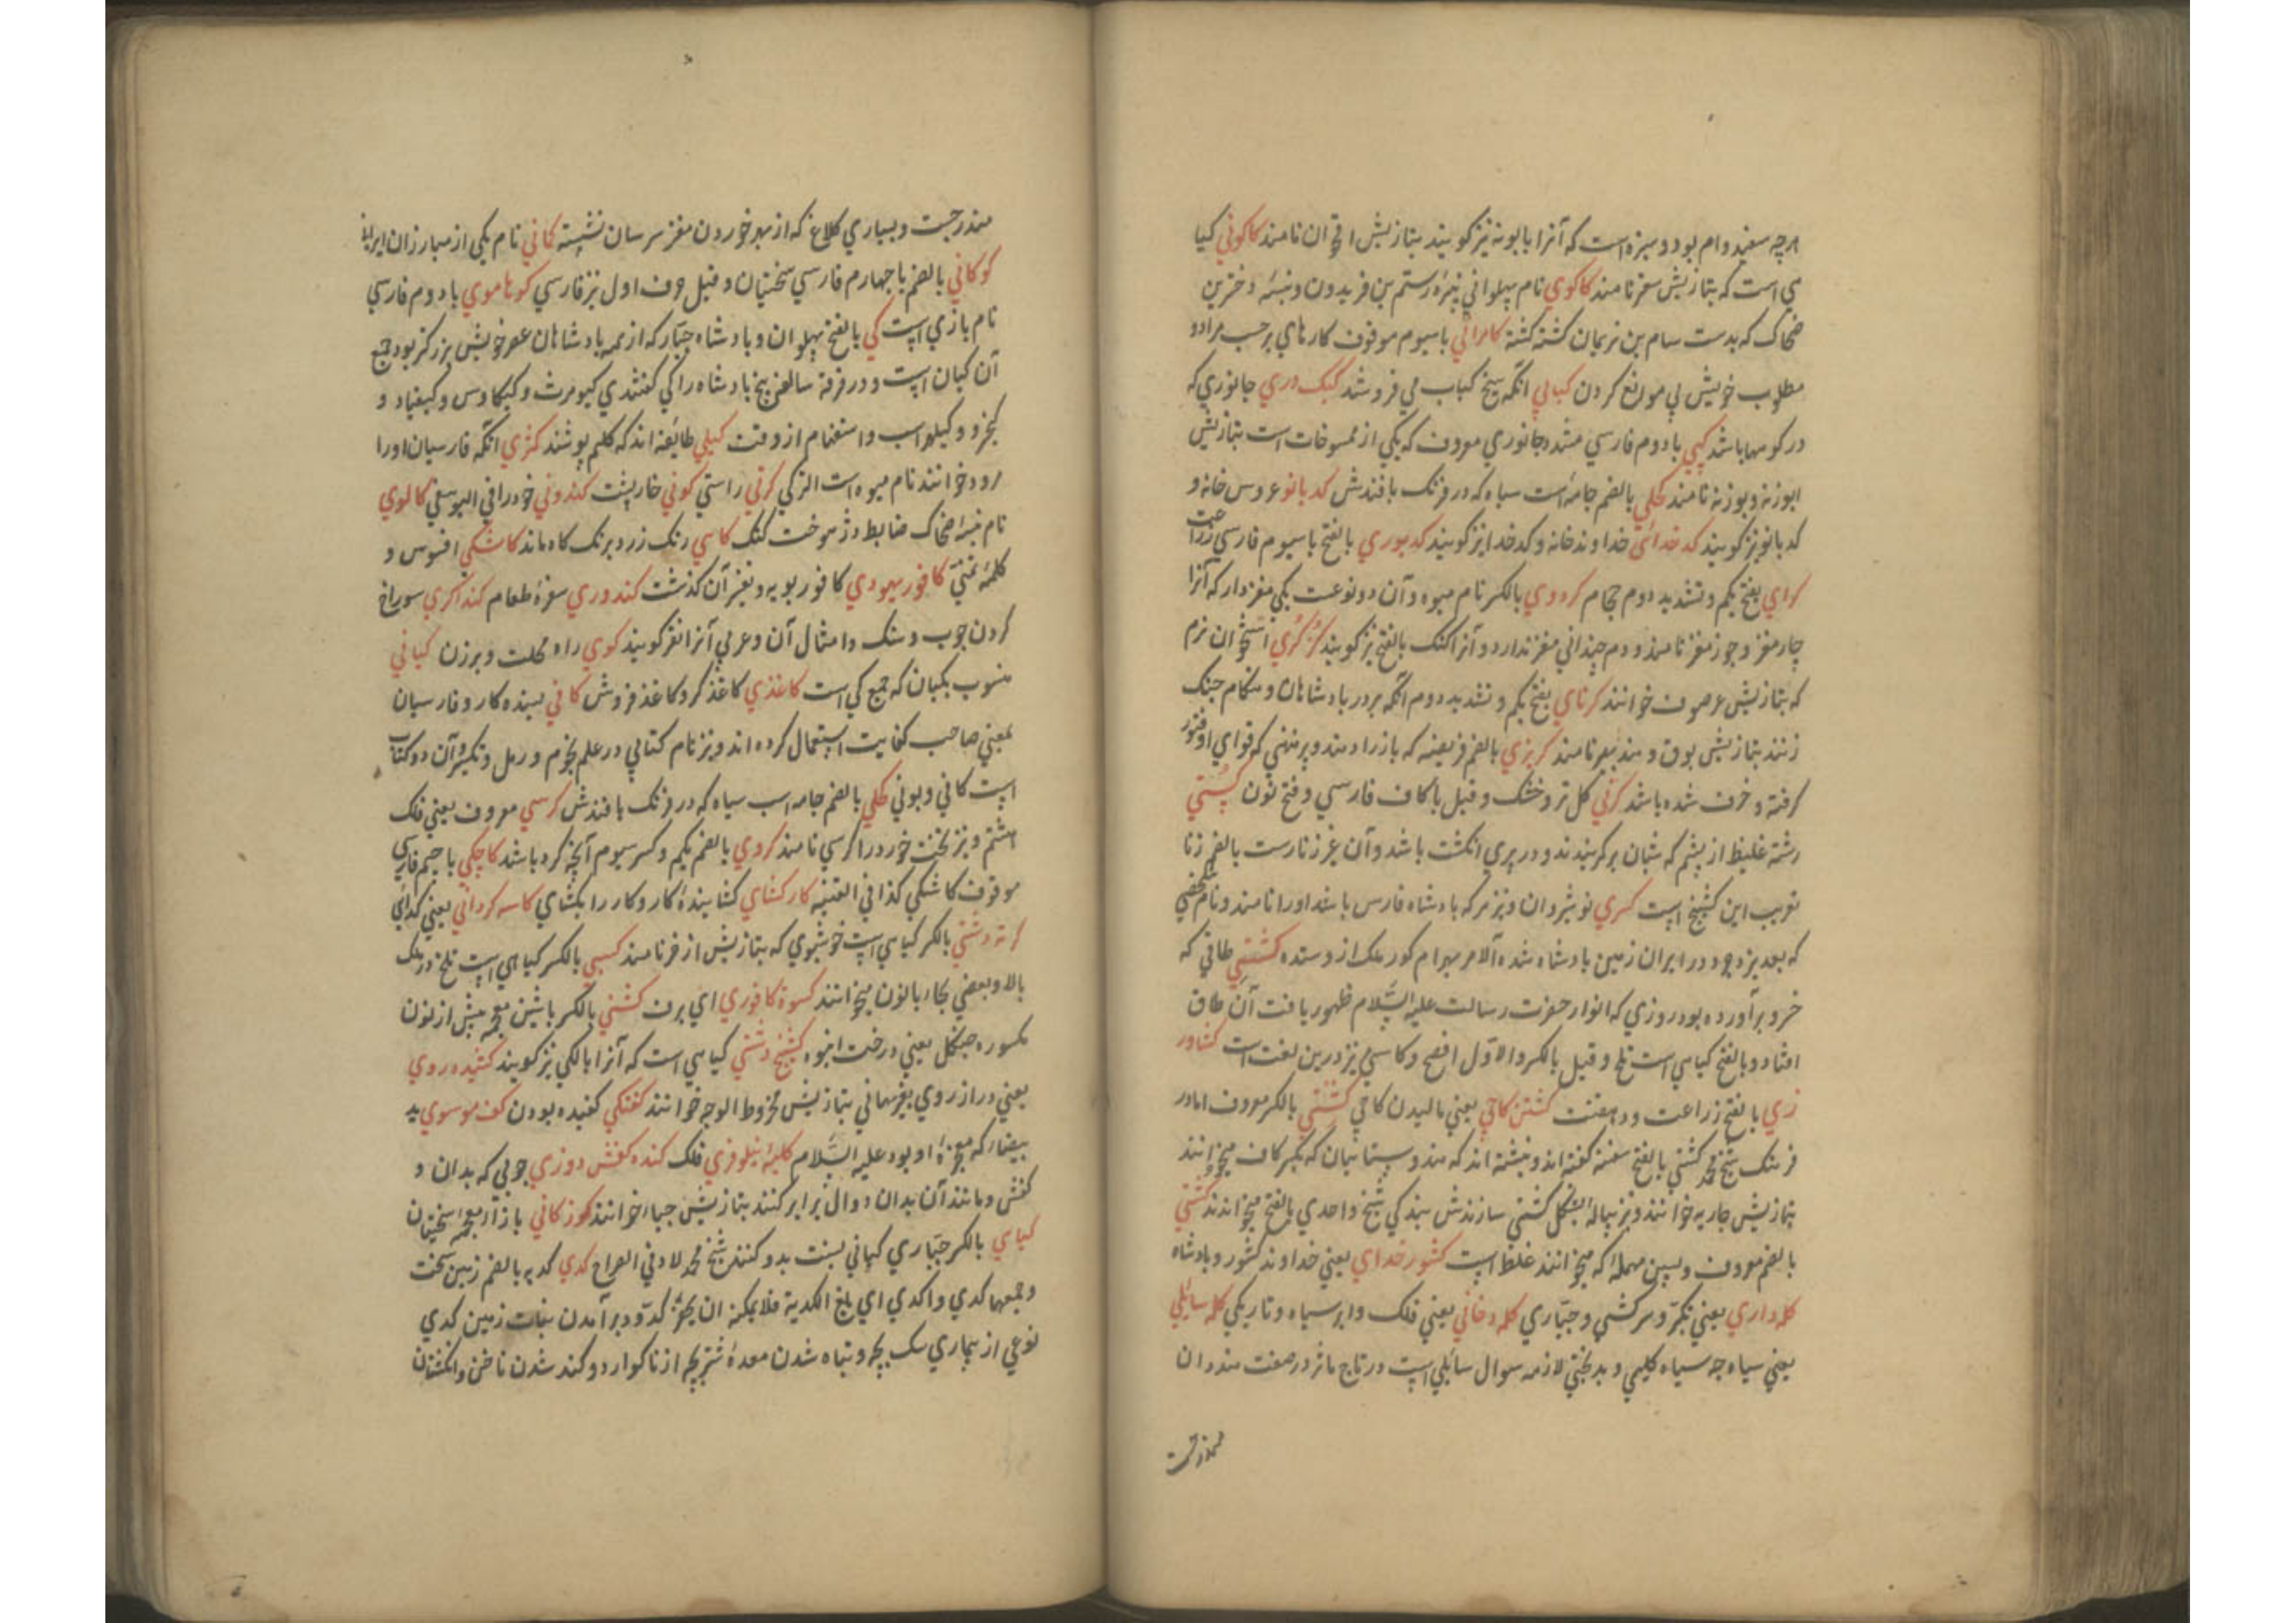 هرچه سفید وام بود و سبزه است که آنرا بابونه نیز کویند بتازیش اقحوان نامند کاکونی کیا
هی است که بتازیش سعتر نامند کاکوی نام پهلوانی نبیرهٔ رستم بن فریدون و نبسهٔ دخترین
ضحاک که بدست سام بن نریمان کشته کشته کامرانی با سیوم موقوف کارهای برحسب مراد و
مطلوب خویش بی موانع کردن کبابی آنکه سیخ کباب می فروشد کبک دری جانوری که
در کوهها باشد کپی با دوم فارسی مشدد جانوری معروف که یکی از ممسوخات است بتازیش
ابوزنه و بوزنه نامند کحلی بالضم جامهٔ است سیاه که در فرنک بافندش کدبانو عروس خانه و
کدبانو نیز کویند کدخدائی خداوند خانه و کدخدا نیز کویند کدیوری بالفتح با سیوم فارسی زراعت
کرای بفتح یکم و تشدید دوم حجام کردوی بالکسر نام میوه و آن دو نوعست یکی مغزدار که آنرا
چارمغز و جوزمغز نامند و دوم چندانی مغز ندارد و آنرا کنک بالفتح نیز کویند کرکری استخوان نرم
که بتازیش غرضوف خوانند کرنای بفتح یکم و تشدید دوم آنکه بر در بادشاهان و هنکام جنک
زنند بتازیش بوق و هند بهیر نامند کربزی بالضم فریفته که باز راه دهند و پیر منی که قوای او فتور
کرفته و خرف شده باشد کرنی کل تر و خشک و قیل با کاف فارسی و فتح نون کستی
رشته غلیظ از پشم که شبان بر کمر بندند و در پری انکشت باشد و آن غیر زنارست بالضم زنا
تعریب این کشیخ است کسری نوشیروان و نیز هر که بادشاه فارس باشد او را نامند و نام شخصی
که بعد یزدجرد در ایران زمین بادشاه شده آلامر بهرام کور ملک از وستده کشتی طاقی که
خسرو برآورده بود روزی که انوار حضرت رسالت علیه السلام ظهور یافت آن طاق
افتاد و بالفتح کیاهی است تلخ و قیل بالکسر و الاول افصح و کاسنی نیز درین لغت است کشاور
زی بالفتح زراعت و دهقنت کشتن کاجی یعنی مالیدن کاجی کشتی بالکسر معروف اما در
فرهنک شیخ محمد کشتی بالفتح سفینه کفته اند و نبشته اند که هندوستانیان که بکسر کاف میخوانند
بتازیش جاریه خوانند و نیز پیاله بشکل کشتی سازندش بندکی شیخ واحدی بالفتح میخوانند کشتی
بالضم معروف و بسین مهمله که میخوانند غلط است کشور خدای یعنی خداوند کشور و بادشاه
کله داری یعنی تکبر و سرکشی و جباری کله دخانی یعنی فلک و ابر سیاه و تاریکی کله سائلی
یعنی سیاه چه سیاه کلیمی و بدبختی لازمه سوال سائلی است در تاج ماثر در صفت هندوان
مندرجست و بسیاری کلاغ که از بهر خوردن مغز سرسان نشسته کانی نام یکی از مبارزان ایرانی
کوکانی بالضم با چهارم فارسی سختیان و قیل حرف اول نیز فارسی کوتاموی با دوم فارسی
نام بازی است کی بالفتح پهلوان و بادشاه جبار که از همه بادشاهان عصر خویش بزرکتر بود جمع
آن کیان است و در فرقهٔ سالف پنج بادشاه را کی کفتندی کیومرث و کیکاوس و کیقباد و
کیخسرو و کیلهراسب و استغنام ازوقت کیلی طائفه اند که کلیم پوشند کمثری آنکه فارسیان او را
امرود خوانند نام میوه است الز کی کرنی راستی کونی خارپشت کندونی خودرا فی الیوسفی کالوی
نام نبسهٔ ضحاک ضابط دژ هوخت کنک کاهی رنک زرد برنک کاه ماند کاشکی افسوس و
کلمهٔ تمنی کافور یهودی کافور بویه و نیز آن کذشت کندوری سفرهٔ طعام کنداکری سوراخ
کردن چوب و سنک و امثال آن و عربی آنرا نقر کویند کوی راه محلت و برزن کیانی
منسوب بکیان که جمع کی است کاغذی کاغذکر و کاغذ فروش کافی بسنده کار و فارسیان
بمعنی صاحب کفایت استعمال کرده اند و نیز نام کتابی در علم نجوم و رمل و تکسر و آن دو کتاب
است کافی و بونی کحلی بالضم جامه اسب سیاه که در فرنک بافندش کرسی معروف یعنی فلک
هشتم و نیز تخت خورد را کرسی نامند کروی بالضم یکم و کسر سیوم آنچه کرد باشد کاچکی با جیم فارسی
موقوف کاشکی کذا فی القنیه کارکشای کشایندهٔ کار و کار را بکشای کاسه کردانی یعنی کدائی
کرنه دشتی بالکسر کیاهی است خوشبوی که بتازیش اذخر نامند کسبی بالکسر کیاهی است تلخ درملک
بالا و بعضی بجا، با نون میخوانند کسوة کافوری ای برف کشنی بالکسر با شین معجمه پیش از نون
مکسوره جنکل یعنی درخت انبوه کشنج دشتی کیاهی است که آنرا بالکی نیز کویند کشیده روی
یعنی دراز روی بغز نهانی بتازیش مخروط الوجه خوانند کفتکی کفیده بودن کف موسوی ید
بیضا، که معجزهٔ او بود علیه السلام کلبهٔ نیلوفری فلک کنده کفش دوزی چوبی که بدان و
کفش و مانند آن بدان دوال برابر کنند بتازیش جباء خوانند کوزکانی با زاء معجمه سختیان
کیای بالکسر جباری کیپانی بسنت بدو کنند شیخ محمد لاد فی الصراح کدی کدیه بالضم زمین سخت
و جمعها کدی و اکدی ای بلغ الکدیة فلا یمکنه ان یحفر کدو دیر آمدن نبات زمین کدی
نوعی از بیماری سک بچه و تباه شدن معدهٔ شتر بچه از ناکوارد و کند شدن ناخن و انکشتان